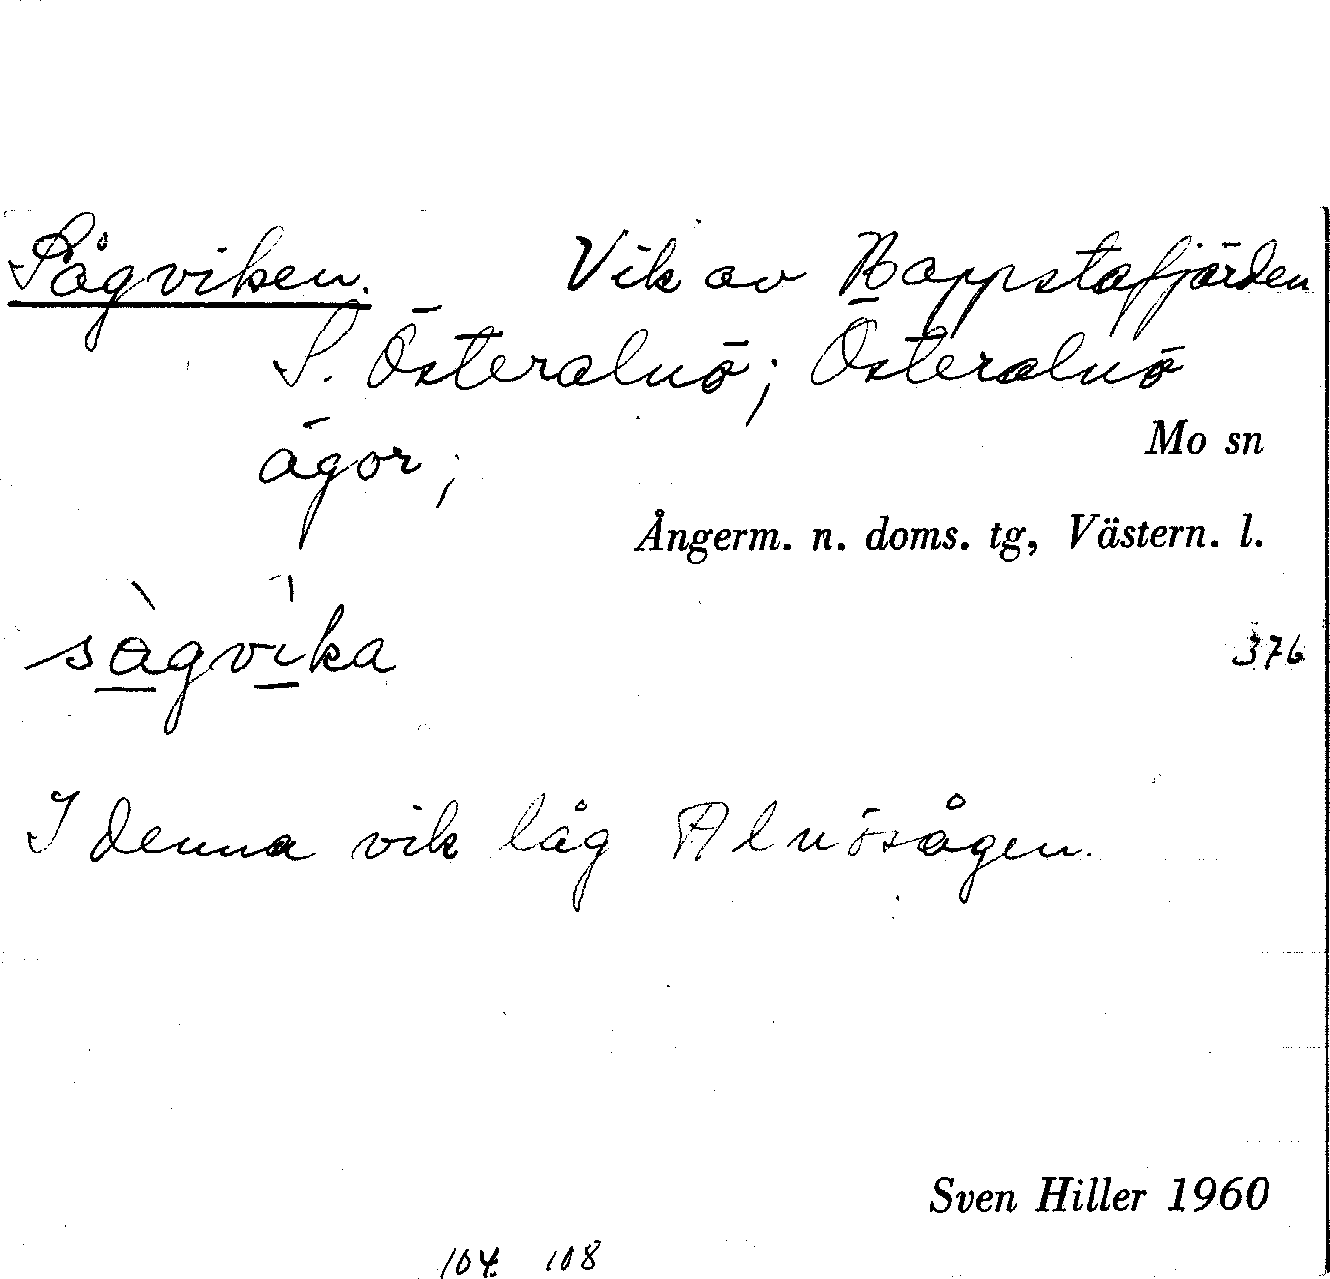 Sågviken. Vik av Bappstafjärden
S. Österalnö; Österalnö
ägor;
Mo sn
Ångerm. n. doms. tg, Västern. l.
sàgvi̍ka
376
I denna vik låg Alnösågen.
Sven Hiller 1960
104 108